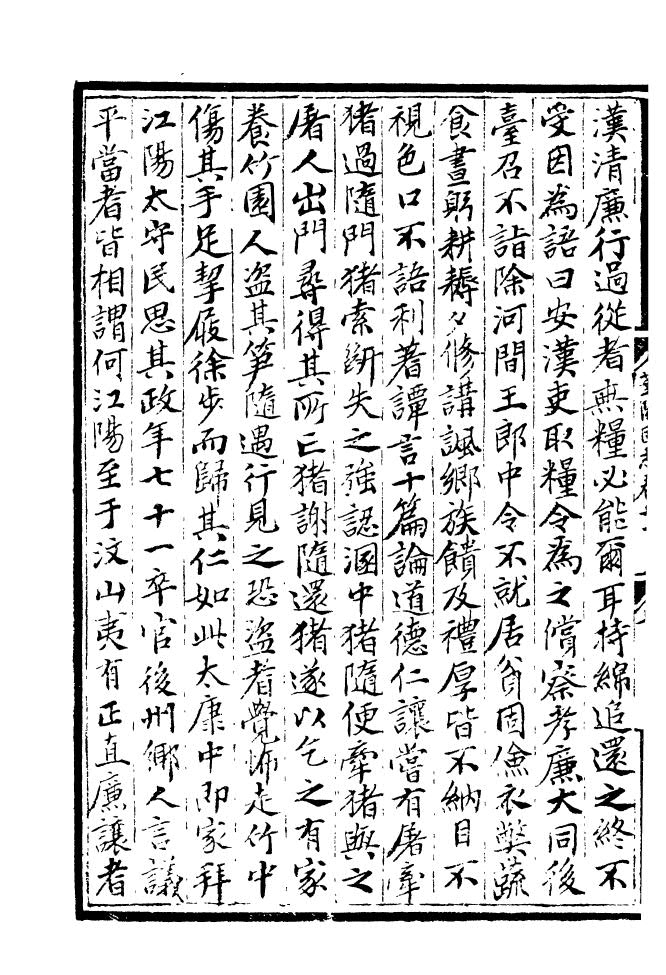 漢清廉行過從者無糧必能爾耳持綿追還之終不
受因為語曰安漢吏取糧令為之償察孝廉大同後
臺召不詣除河間王郎中令不就居貧固儉衣獘蔬
食晝躬耕耨夕修講諷鄉族饋及禮厚皆不納目不
視色口不語利著譚言十篇論道德仁讓嘗有屠牽
猪過隨門猪索斷失之強認溷中猪隨便牽猪與之
屠人出門尋得其所亡猪謝隨還猪遂以乞之有家
養竹園人盜其笋隨遇行見之恐盜者覺怖走竹中
傷其手足挈屐徐步而歸其仁如此太康中即家拜
江陽太守民思其政年七十一卒官後州鄉人言議
平當者皆相謂何江陽至于汶山夷有正直廉讓者